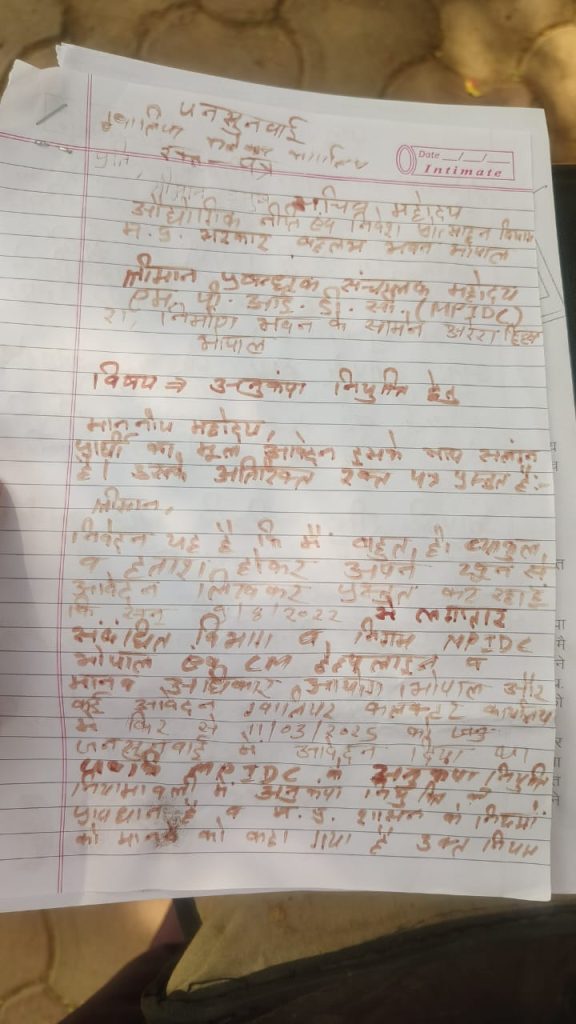 जनसुनवाई
ग्वालियर
रक्त - पत्र
Date __/__/__
Intimate
सचिव महोदय
औद्योगिक नीति एवं निवेश प्रोत्साहन विभाग
म. प्र. सरकार वल्लभ भवन भोपाल
श्रीमान प्रबन्धक संचालक महोदय
एम. पी. आई. डी. सी. (MPIDC)
निर्माण भवन के सामने अरेरा हिल्स
भोपाल
विषय ⇒ अनुकंपा नियुक्ति हेतु
माननीय महोदय,
प्रार्थी का मूल आवेदन इसके साथ संलग्न
है। इसके अतिरिक्त रक्त पत्र प्रस्तुत है:-
श्रीमान,
निवेदन यह है कि मैं बहुत ही व्याकुल
व हताश होकर अपने खून से
आवेदन लिखकर प्रस्तुत कर रहा हूँ
कि /8/2022 से लगातार
संबंधित विभाग व निगम MPIDC
भोपाल एवं CM हेल्पलाइन व
मानव अधिकार आयोग भोपाल और
कई आवेदन ग्वालियर कलेक्टर कार्यालय
में फिर से 11/03/2025 को
जनसुनवाई में आवेदन दिया था
MPIDC के अनुकंपा नियुक्ति
नियमावली में अनुकंपा नियुक्ति के
प्रावधान है व म. प्र. शासन के नियमों
को मानने को कहा गया है उक्त नियम